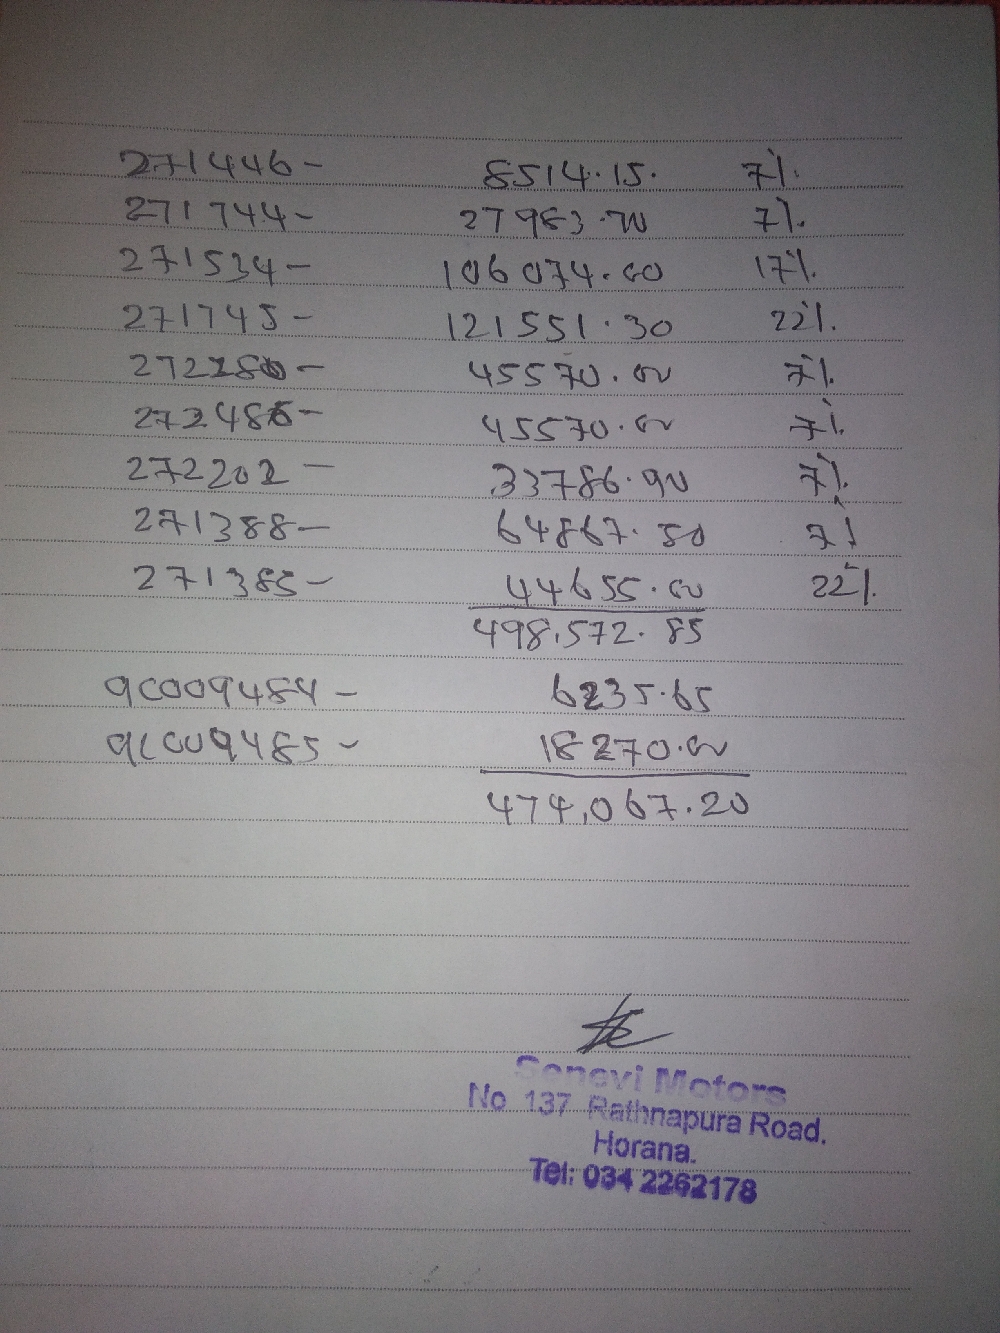 271446- 8514.15. 7%.
271744- 27983.70 7%.
271534- 106074.00 17%.
271745- 121551.30 22%.
272280- 45570.00 7%.
272486- 45570.00 7%.
272202 - 33786.90 7%.
271388- 64867.80 7%
271385- 44655.00 22%.
498,572.85
9C009484 - 6235.65
9C009485 - 18270.00
474,067.20
Senevi Motors
No 137 Rathnapura Road.
Horana.
Tel: 034 2262178